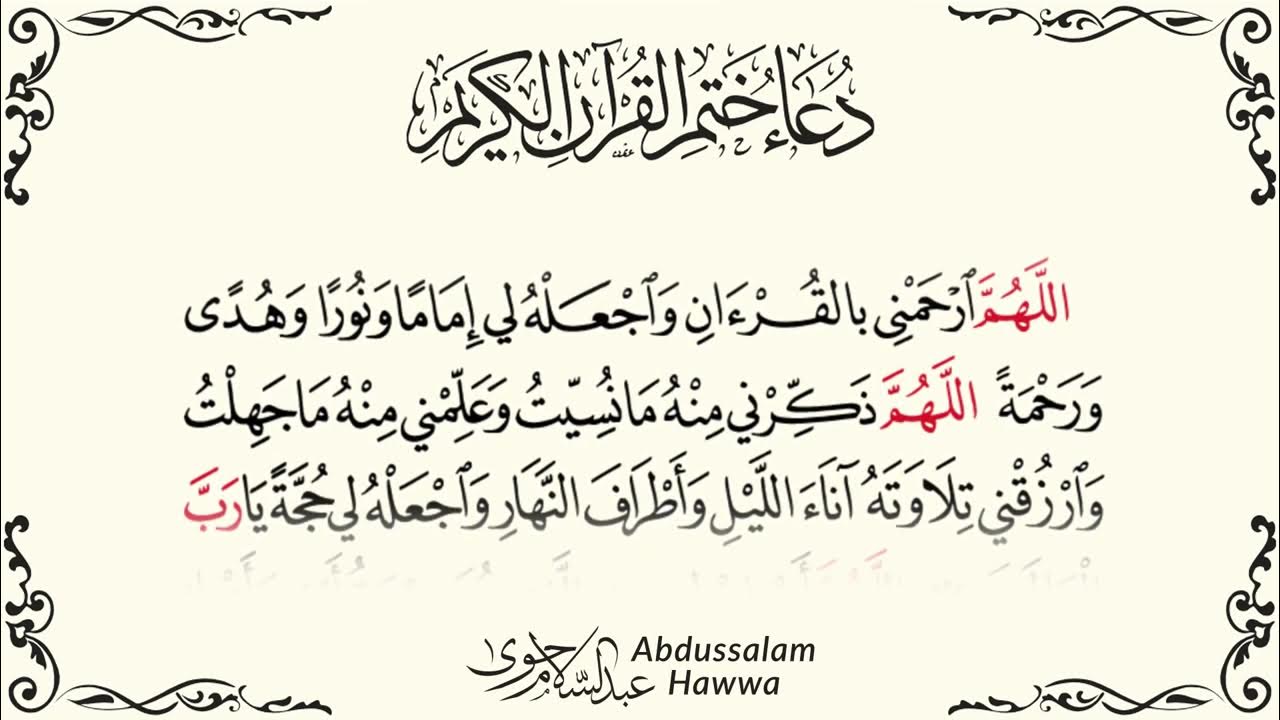 دُعَاءُ خَتْمِ الْقُرْآنِ الْكَرِيْمِ
اللَّهُمَّ ٱرْحَمْنِي بالقُرْءَانِ وَٱجْعَلْهُ لي إِمَامًا وَنُورًا وَهُدًى
وَرَحْمَةً اللَّهُمَّ ذَكِّرْني مِنْهُ مَا نُسِّيتُ وَعَلِّمْني مِنْهُ مَا جَهِلْتُ
وَٱرْزُقْني تِلَاوَتَهُ آنَاءَ اللَّيْلِ وَأَطْرَافَ النَّهَارِ وَٱجْعَلْهُ لي حُجَّةً يَا رَبَّ
عبدالسلام حوى
Abdussalam
Hawwa